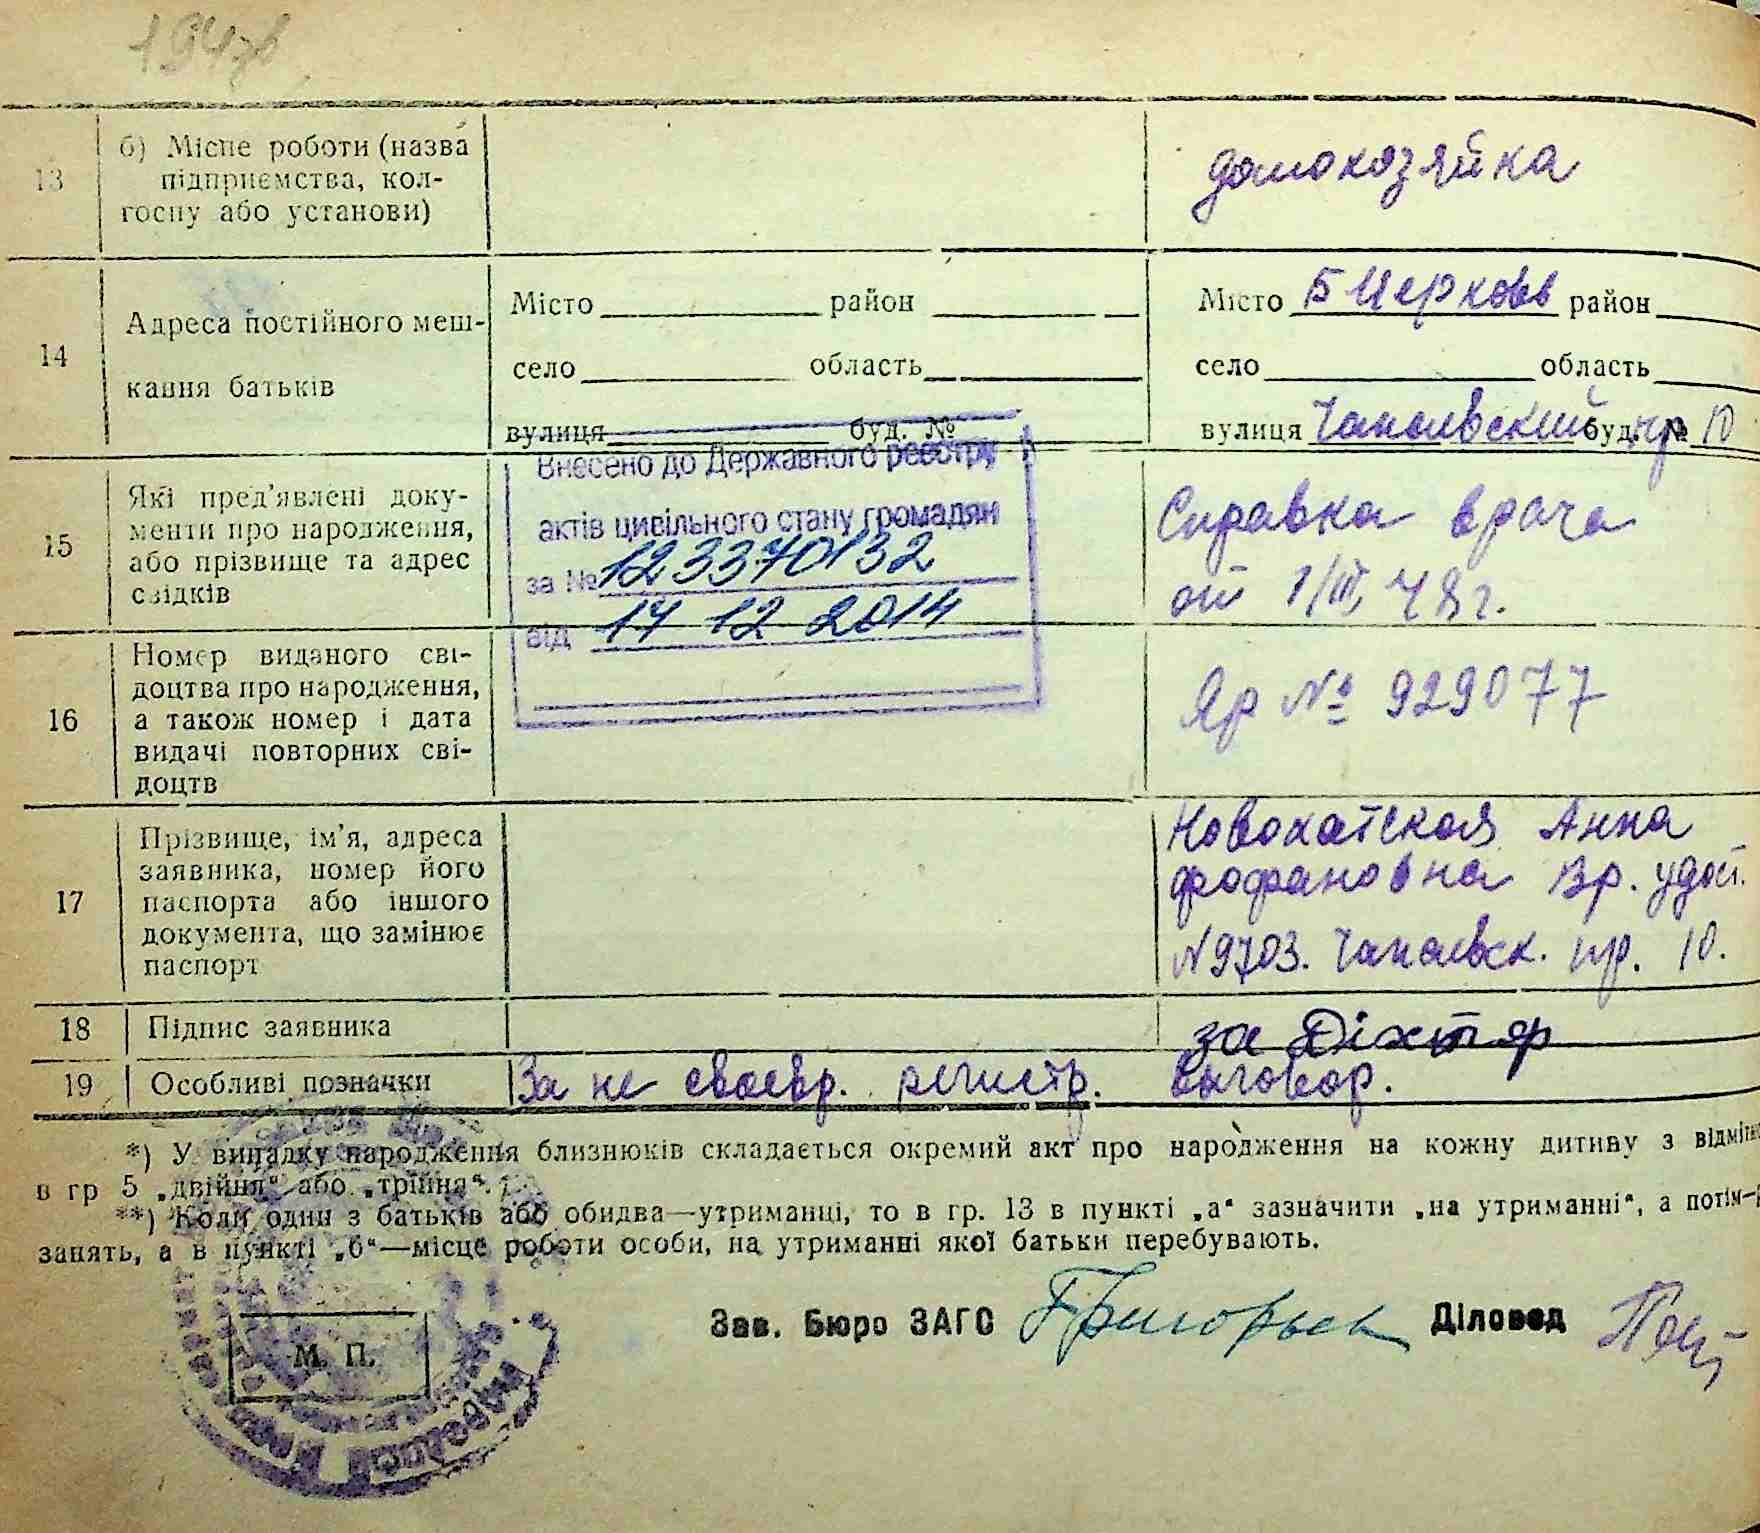 13
б) Місце роботи (назва
підприємства, кол-
госпу або установи)
домохозяйка
14
Адреса постійного меш-
кання батьків
Місто район
село область
вулиця буд. №
Місто Б Церковь район
село область
вулиця Чапаевский буд. № пр 10
15
Які пред'явлені доку-
менти про народження,
або прізвище та адрес
свідків
Внесено до Державного реєстру
актів цивільного стану громадян
за № 123370132
від 17 12 2014
Справка врача
от 1/III 48 г.
16
Номер виданого сві-
доцтва про народження,
а також номер і дата
видачі повторних сві-
доцтв
Яр № 929077
17
Прізвище, ім'я, адреса
заявника, номер його
паспорта або іншого
документа, що замінює
паспорт
Новохатская Анна
Фофановна Вр. удост.
N 9703. Чапаевск. пр. 10.
18
Підпис заявника
за Діхтяр
19
Особливі позначки
За не своевр. регистр. выговор.
*) У випадку народження близнюків складається окремий акт про народження на кожну дитину з
в гр 5 „двійня“ або „трійня“.
**) Коли один з батьків або обидва—утриманці, то в гр. 13 в пункті „а“ зазначити „на утриманні“, а потім—
занять, а в пункті „б“—місце роботи особи, на утриманні якої батьки перебувають.
М. П.
Зав. Бюро ЗАГС Григорьев Діловод